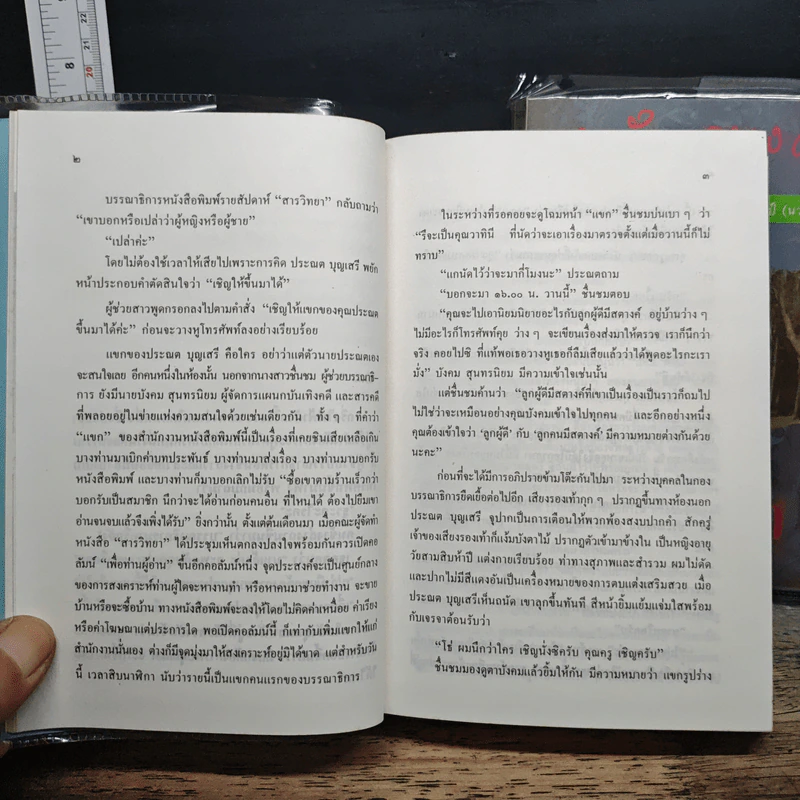 ๒
บรรณาธิการหนังสือพิมพ์รายสัปดาห์ “สารวิทยา” กลับถามว่า
“เขาบอกหรือเปล่าว่าผู้หญิงหรือผู้ชาย”
“เปล่าค่ะ”
โดยไม่ต้องใช้เวลาให้เสียไปเพราะการคิด ประณต บุญเสรี พยัก
หน้าประกอบคำตัดสินใจว่า “เชิญให้ขึ้นมาได้”
ผู้ช่วยสาวพูดกรอกลงไปตามคำสั่ง “เชิญให้แขกของคุณประณต
ขึ้นมาได้ค่ะ” ก่อนจะวางหูโทรศัพท์ลงอย่างเรียบร้อย
แขกของประณต บุญเสรี คือใคร อย่าว่าแต่ตัวนายประณตเอง
จะสนใจเลย อีกคนหนึ่งในห้องนั้น นอกจากนางสาวชื่นชม ผู้ช่วยบรรณาธิ-
การ ยังมีนายบังคม สุนทรนิยม ผู้จัดการแผนกบันเทิงคดี และสารคดี
ที่พลอยอยู่ในข่ายแห่งความสนใจด้วยเช่นเดียวกัน ทั้ง ๆ ที่คำว่า
“แขก” ของสำนักงานหนังสือพิมพ์นี้เป็นเรื่องที่เคยชินเสียเหลือเกิน
บางท่านมาเบิกค่าบทประพันธ์ บางท่านมาส่งเรื่อง บางท่านมาบอกรับ
หนังสือพิมพ์ และบางท่านก็มาบอกเลิกไม่รับ “ซื้อเขาตามร้านเร็วกว่า
บอกรับเป็นสมาชิก นึกว่าจะได้อ่านก่อนคนอื่น ที่ไหนได้ ต้องไปยืมเขา
อ่านจนจบแล้วจึงเพิ่งได้รับ” ยิ่งกว่านั้น ตั้งแต่ต้นเดือนมา เมื่อคณะผู้จัดทำ
หนังสือ “สารวิทยา” ได้ประชุมเห็นตกลงปลงใจพร้อมกันควรเปิดคอ
ลัมน์ “เพื่อท่านผู้อ่าน” ขึ้นอีกคอลัมน์หนึ่ง จุดประสงค์จะเป็นศูนย์กลาง
ของการสงเคราะห์ท่านผู้ใดจะหางานทำ หรือหาคนมาช่วยทำงาน จะขาย
บ้านหรือจะซื้อบ้าน ทางหนังสือพิมพ์จะลงให้โดยไม่คิดค่าเหนื่อย ค่าเรียง
หรือค่าโฆษณาแต่ประการใด พอเปิดคอลัมน์นี้ ก็เท่ากับเพิ่มแขกให้แก่
สำนักงานนั่นเอง ต่างก็มีจุดมุ่งมาให้สงเคราะห์อยู่มิได้ขาด แต่สำหรับวัน
นี้ เวลาสิบนาฬิกา นับว่ารายนี้เป็นแขกคนแรกของบรรณาธิการ
๓
ในระหว่างที่รอคอยจะดูโฉมหน้า “แขก” ชื่นชมบ่นเบา ๆ ว่า
“รึจะเป็นคุณวาทินี ที่นัดว่าจะเอาเรื่องมาตรวจตั้งแต่เมื่อวานนี้ก็ไม่
ทราบ”
“แกนัดไว้ว่าจะมากี่โมงนะ” ประณตถาม
“บอกจะมา ๑๖.๐๐ น. วานนี้” ชื่นชมตอบ
“คุณจะไปเอานิยมนิยายอะไรกับลูกผู้ดีมีสตางค์ อยู่บ้านว่าง ๆ
ไม่มีอะไรก็โทรศัพท์คุย ว่าง ๆ จะเขียนเรื่องส่งมาให้ตรวจ เราก็นึกว่า
จริง คอยไปซิ ที่แท้พอเธอวางหูเธอก็ลืมเสียแล้วว่าได้พูดอะไรกะเรา
มั่ง” บังคม สุนทรนิยม มีความเข้าใจเช่นนั้น
แต่ชื่นชมค้านว่า “ลูกผู้ดีมีสตางค์ที่เขาเป็นเรื่องเป็นราวก็ถมไป
ไม่ใช่ว่าจะเหมือนอย่างคุณบังคมเข้าใจไปทุกคน และอีกอย่างหนึ่ง
คุณต้องเข้าใจว่า ‘ลูกผู้ดี’ กับ ‘ลูกคนมีสตางค์’ มีความหมายต่างกันด้วย
นะคะ”
ก่อนที่จะได้มีการอภิปรายข้ามโต๊ะกันไปมา ระหว่างบุคคลในกอง
บรรณาธิการยืดเยื้อต่อไปอีก เสียงรองเท้ากุก ๆ ปรากฏขึ้นทางห้องนอก
ประณต บุญเสรี จุปากเป็นการเตือนให้พวกพ้องสงบปากคำ สักครู่
เจ้าของเสียงรองเท้าก็แง้มบังตาไม้ ปรากฏตัวเข้ามาข้างใน เป็นหญิงอายุ
วัยสามสิบห้าปี แต่งกายเรียบร้อย ท่าทางสุภาพและสำรวม ผมไม่ดัด
และปากไม่มีสีแดงอันเป็นเครื่องหมายของการตบแต่งเสริมสวย เมื่อ
ประณต บุญเสรีเห็นถนัด เขาลุกขึ้นทันที สีหน้ายิ้มแย้มแจ่มใสพร้อม
กับเจรจาต้อนรับว่า
“โช่ ผมนึกว่าใคร เชิญนั่งซิครับ คุณครู เชิญครับ”
ชื่นชมมองดูตาบังคมแล้วยิ้มให้กัน มีความหมายว่า แขกรูปร่าง
8
20
21
22